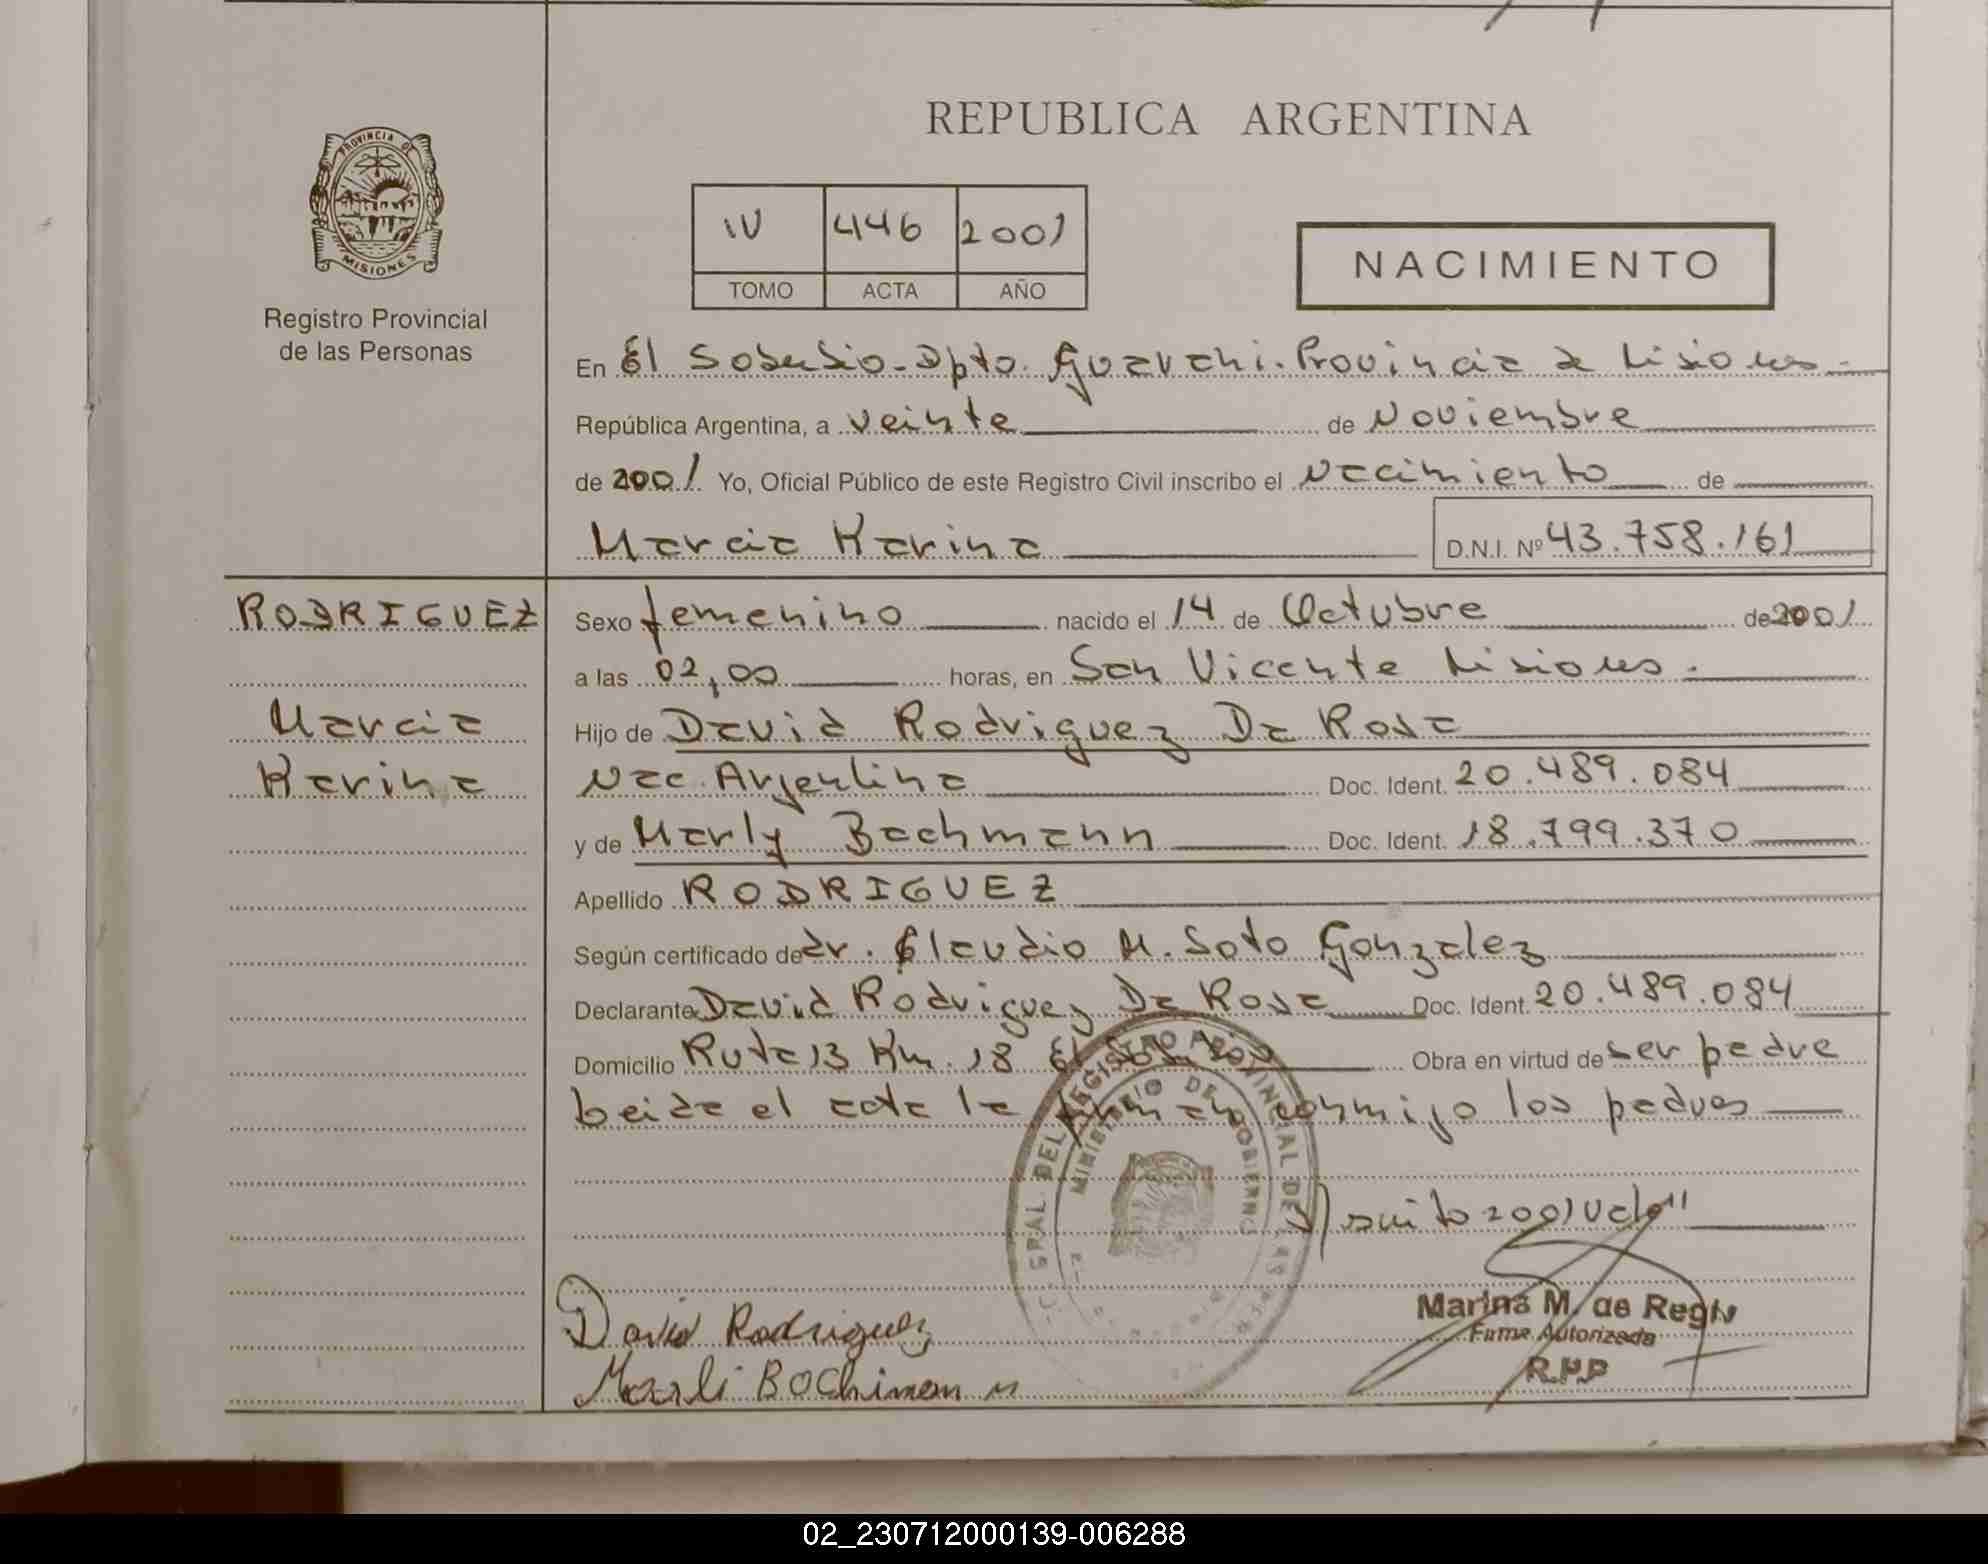 REPUBLICA ARGENTINA
PROVINCIA DE
MISIONES
Registro Provincial
de las Personas
IV 446 2001
TOMO ACTA AÑO
NACIMIENTO
En El Soberbio - Dpto. Guaraní. Provincia de Misiones.-
República Argentina, a veinte de Noviembre
de 2001 Yo, Oficial Público de este Registro Civil inscribo el nacimiento de
Marcia Karina D.N.I. Nº 43.758.161
RODRIGUEZ
Marcia
Karina
Sexo femenino nacido el 14 de Octubre de 2001
a las 02,00 horas, en San Vicente Misiones.
Hijo de David Rodriguez Da Rosa
Nac. Argentina Doc. Ident. 20.489.084
y de Marly Bachmann Doc. Ident. 18.799.370
Apellido RODRIGUEZ
Según certificado de dr. Claudio M. Soto Gonzalez
Declarante David Rodriguez Da Rosa Doc. Ident. 20.489.084
Domicilio Ruta 13 Km. 18 El Soberbio Obra en virtud de ser padre
leida el acta la firman conmigo los padres
2001 Vale"
David Rodriguez
Marli Bochimann
Marina M. de Regiv
Firma Autorizada
R.P.P
GRAL. DEL REGISTRO PROVINCIAL DE LAS PER
MINISTERIO DE GOBIERNO
02_230712000139-006288